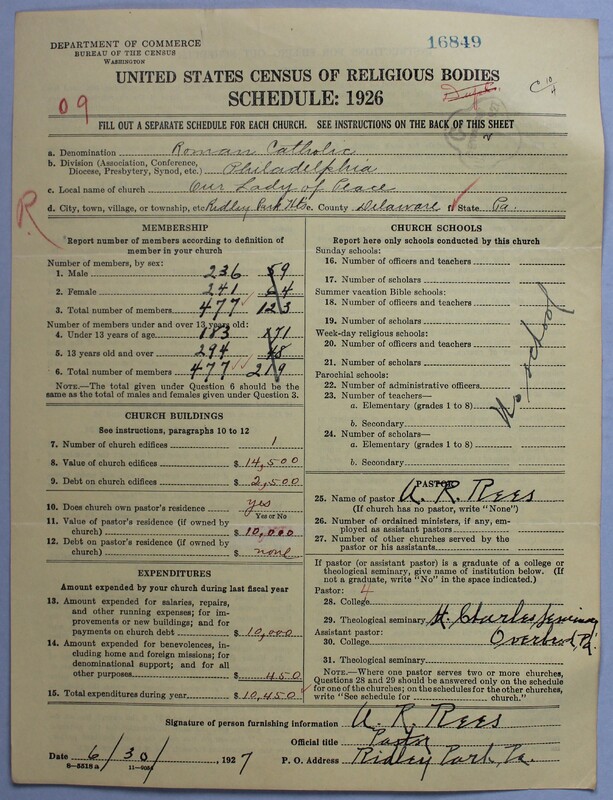 DEPARTMENT OF COMMERCE
BUREAU OF THE CENSUS
WASHINGTON
16849
UNITED STATES CENSUS OF RELIGIOUS BODIES
SCHEDULE: 1926
09
Dupl.
C 10/4
FILL OUT A SEPARATE SCHEDULE FOR EACH CHURCH. SEE INSTRUCTIONS ON THE BACK OF THIS SHEET
a. Denomination Roman Catholic
b. Division (Association, Conference, Diocese, Presbytery, Synod, etc.) Philadelphia
c. Local name of church Our Lady of Peace
d. City, town, village, or township, etc. Ridley Park Hts e. County Delaware f. State Pa.
R
MEMBERSHIP
Report number of members according to definition of
member in your church
Number of members, by sex:
1. Male 236 59
2. Female 241 64
3. Total number of members 477 123
Number of members under and over 13 years old:
4. Under 13 years of age 183 171
5. 13 years old and over 294 48
6. Total number of members 477 219
NOTE.—The total given under Question 6 should be
same as the total of males and females given under Question 3.
CHURCH BUILDINGS
See instructions, paragraphs 10 to 12
7. Number of church edifices 1
8. Value of church edifices $ 14,500
9. Debt on church edifices $ 2,500
10. Does church own pastor's residence yes
Yes or No
11. Value of pastor's residence (if owned by
church) $ 10,000
12. Debt on pastor's residence (if owned by
church) $ none
EXPENDITURES
Amount expended by your church during last fiscal year
13. Amount expended for salaries, repairs,
and other running expenses; for im-
provements or new buildings; and for
payments on church debt $ 10,000
14. Amount expended for benevolences,
including home and foreign missions; for
denominational support; and for all
other purposes $ 450
15. Total expenditures during year $ 10,450
CHURCH SCHOOLS
Report here only schools conducted by this church
Sunday schools:
16. Number of officers and teachers
17. Number of scholars
Summer vacation Bible schools:
18. Number of officers and teachers
19. Number of scholars
Week-day religious schools:
20. Number of officers and teachers
21. Number of scholars
Parochial schools:
22. Number of administrative officers
23. Number of teachers—
a. Elementary (grades 1 to 8)
b. Secondary
24. Number of scholars—
a. Elementary (grades 1 to 8)
b. Secondary
No school
PASTOR
25. Name of pastor A. R. Rees
(If church has no pastor, write "None")
26. Number of ordained ministers, if any, em-
ployed as assistant pastors
27. Number of other churches served by the
pastor or his assistants
If pastor (or assistant pastor) is a graduate of a college or
theological seminary, give name of institution below. (If
not a graduate, write "No" in the space indicated.)
Pastor: 4
28. College
29. Theological seminary St. Charles Seminary
Assistant pastor: Overbrook Pa.
30. College
31. Theological seminary
NOTE.—Where one pastor serves two or more churches,
Questions 28 and 29 should be answered only on the schedule
for one of the churches; on the schedules for the other churches,
write "See schedule for church."
Signature of person furnishing information A. R. Rees
Official title Pastor
Date 6/30, 1927 P. O. Address Ridley Park, Pa.
8-5518a